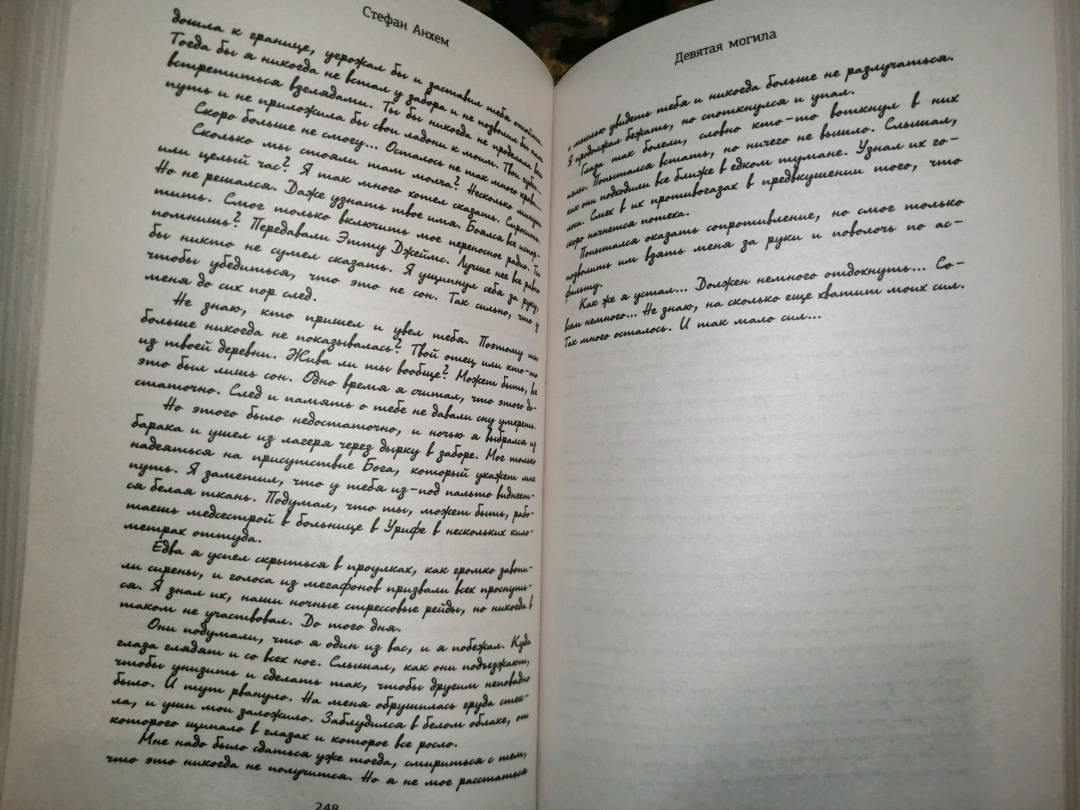 Стефан Анхем
дошла к границе, удержал бы и заставил тебя отойти.
Тогда бы я никогда не встал у забора и не позволил бы нам
встретиться взглядами. Ты бы никогда не проделала весь
путь и не приложила бы свои ладони к моим. Твои губы...
Скоро больше не смогу... Осталось не так много крови...
Сколько мы стояли там молча? Несколько минут
или целый час? Я так много хотел сказать. Спросить.
Но не решался. Даже узнать твое имя. Боялся все испор-
тить. Смог только включить мое переносное радио. Ты
помнишь? Передавали Этту Джеймс. Лучше нее все равно
бы никто не сумел сказать. Я ущипнул себя за руку,
чтобы убедиться, что это не сон. Так сильно, что у
меня до сих пор след.
Не знаю, кто пришел и увел тебя. Поэтому ты
больше никогда не показывалась? Твой отец или кто-то
из твоей деревни. Жива ли ты вообще? Может быть, все
это был лишь сон. Одно время я считал, что этого до-
статочно. След и память о тебе не давали сну умереть.
Но этого было недостаточно, и ночью я выбрался из
барака и ушел из лагеря через дырку в заборе. Мог только
надеяться на присутствие Бога, который укажет мне
путь. Я заметил, что у тебя из-под пальто виднеет-
ся белая ткань. Подумал, что ты, может быть, рабо-
таешь медсестрой в больнице в Урифе в нескольких кило-
метрах оттуда.
Едва я успел скрыться в проулках, как громко завопи-
ли сирены, и голоса из мегафонов призвали всех проснуть-
ся. Я знал их, наши ночные стрессовые рейды, но никогда в
таком не участвовал. До того дня.
Они подумали, что я один из вас, и я побежал. Куда
глаза глядят и со всех ног. Слышал, как они подъезжают,
чтобы унизить и сделать так, чтобы другим неповадно
было. И тут рвануло. На меня обрушилась груда стек-
ла, и уши мои заложило. Заблудился в белом облаке, от
которого щипало в глазах и которое все росло.
Мне надо было сдаться уже тогда, смириться с тем,
что это никогда не получится. Но я не мог расстаться
248
Девятая могила
с мыслью увидеть тебя и никогда больше не разлучаться.
Я продолжал бежать, но споткнулся и упал.
Глаза так болели, словно кто-то воткнул в них
иглы. Попытался встать, но ничего не вышло. Слышал,
как они подходили все ближе в едком тумане. Узнал их го-
лоса. Смех в их противогазах в предвкушении того, что
скоро начнется потеха.
Попытался оказать сопротивление, но смог только
позволить им взять меня за руки и поволочь по ас-
фальту.
Как же я устал... Должен немного отдохнуть... Со-
всем немного... Не знаю, на сколько еще хватит моих сил.
Так много осталось. И так мало сил...